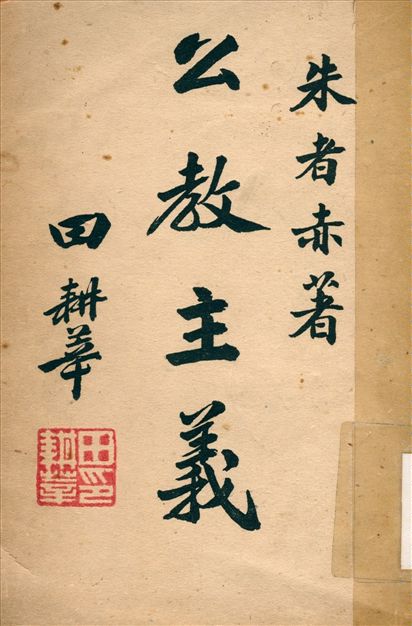 朱者赤著
公教主義
田耕莘
田耕莘印